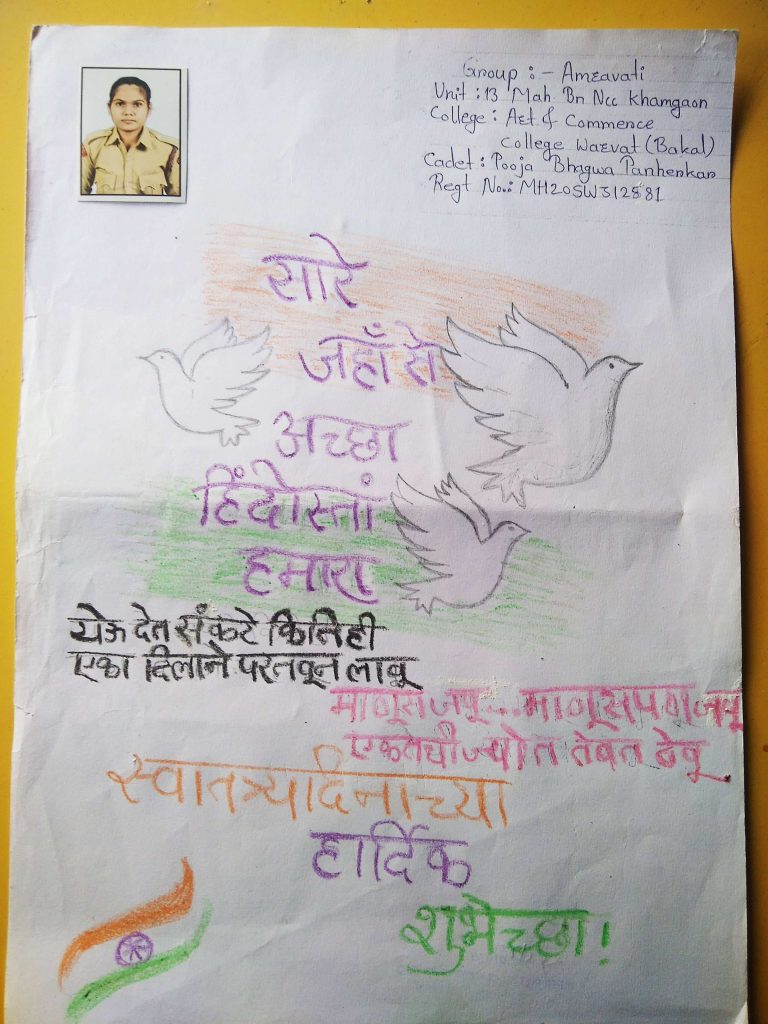 Group : - Amravati
Unit : 13 Mah Bn Ncc Khamgaon
College : Art & Commence
College Warvat (Bakal)
Cadet : Pooja Bhagwa Panhenkar
Regt No.: MH20SW312881
सारे
जहाँ से
अच्छा
हिंदोस्तां
हमारा
येऊ देत संकटे कितिही
एका दिलाने परतवून लावू
माणूस जपू... माणूसपण जपू
एकतेची ज्योत तेवत ठेवू
स्वातत्र्यदिनाच्या
हार्दिक
शुभेच्छा!